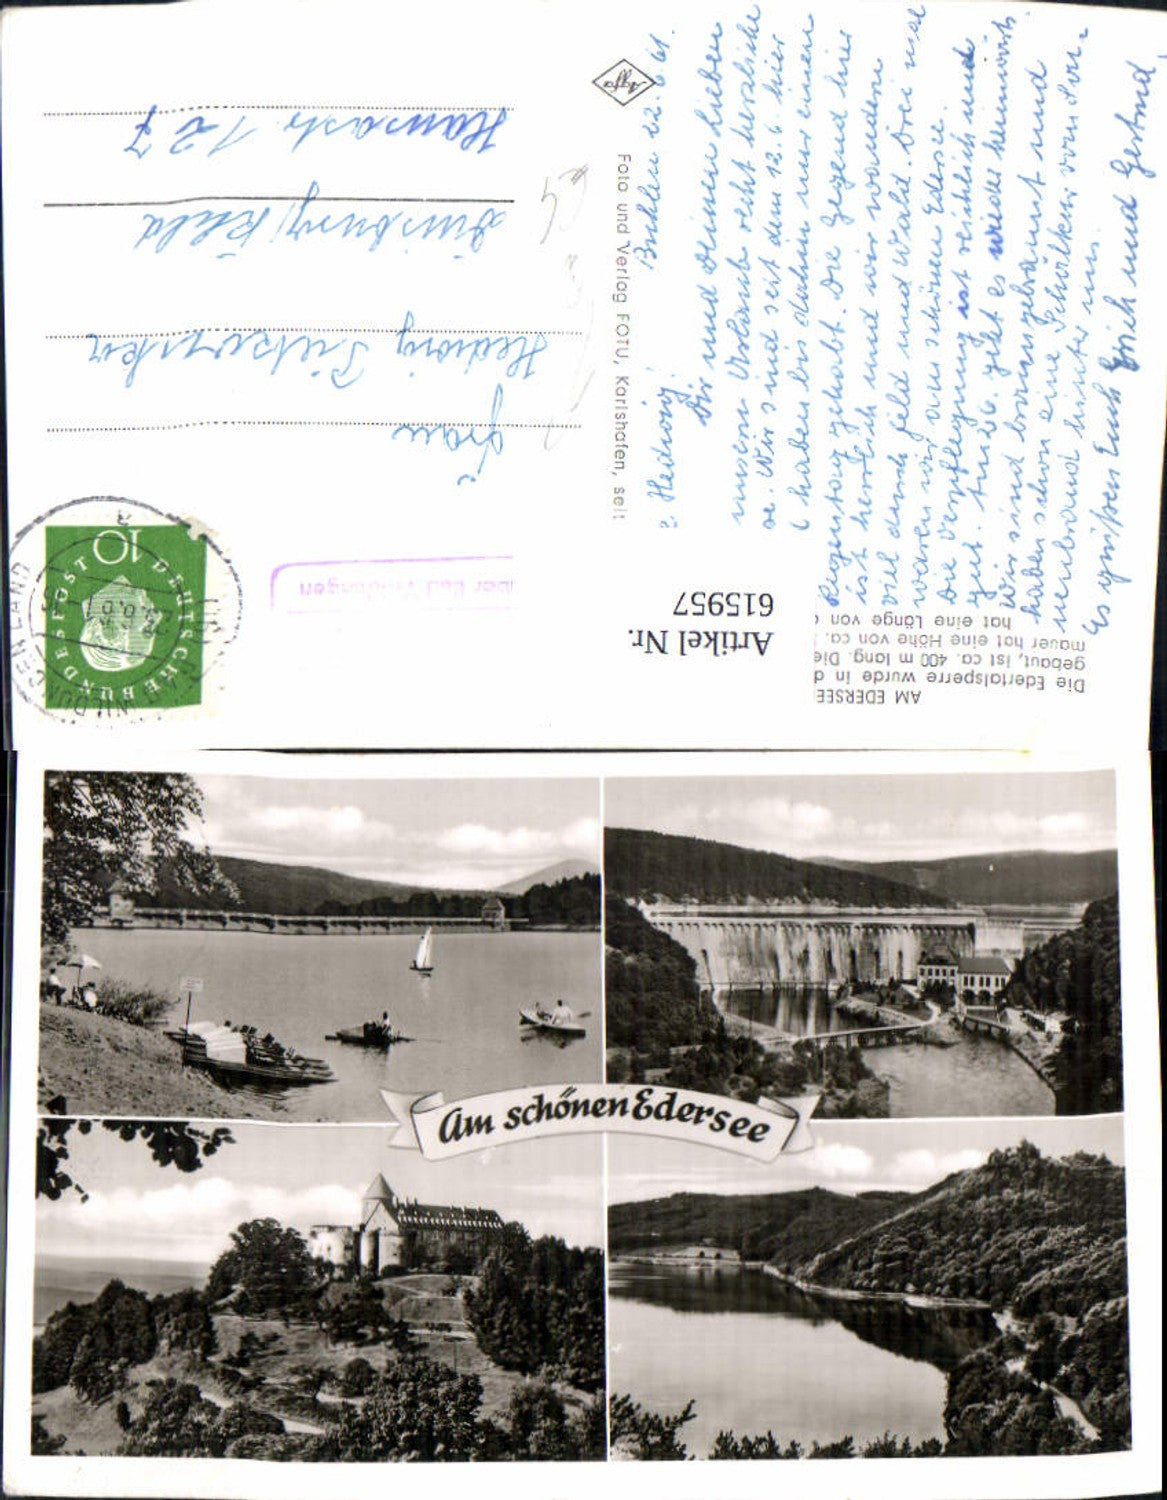 AM EDERSEE
Die Edertalsperre wurde in d
gebaut, ist ca. 400 m lang. Die
mauer hat eine Höhe von ca.
hat eine Länge von
Artikel Nr.
615957
Foto und Verlag FOTU, Karlshafen, seit
Agfa
über Bad Wildungen
10
DEUTSCHE BUNDESPOST
BAD WILDUNGEN
LAND
22.6.61.
Hedwig!
Dir und Deinen Lieben
unserm Urlaub recht herzliche
e. Wir sind seit dem 12.6. hier
haben bis dahin nur einen
Regentag gehabt. Die Gegend hier
ist herrlich und wir wandern
viel durch Feld und Wald. Drei mal
waren wir am schönen Edersee.
Die Verpflegung ist reichlich und
gut. Am 26. geht es wieder heimwärts.
Wir sind braungebrannt und
haben schon eine
hinter uns.
Es grüßen Euch Erich und Gertrud
Frau
Hedwig
Duisburg/
Hansastr. 127
Am schönen Edersee